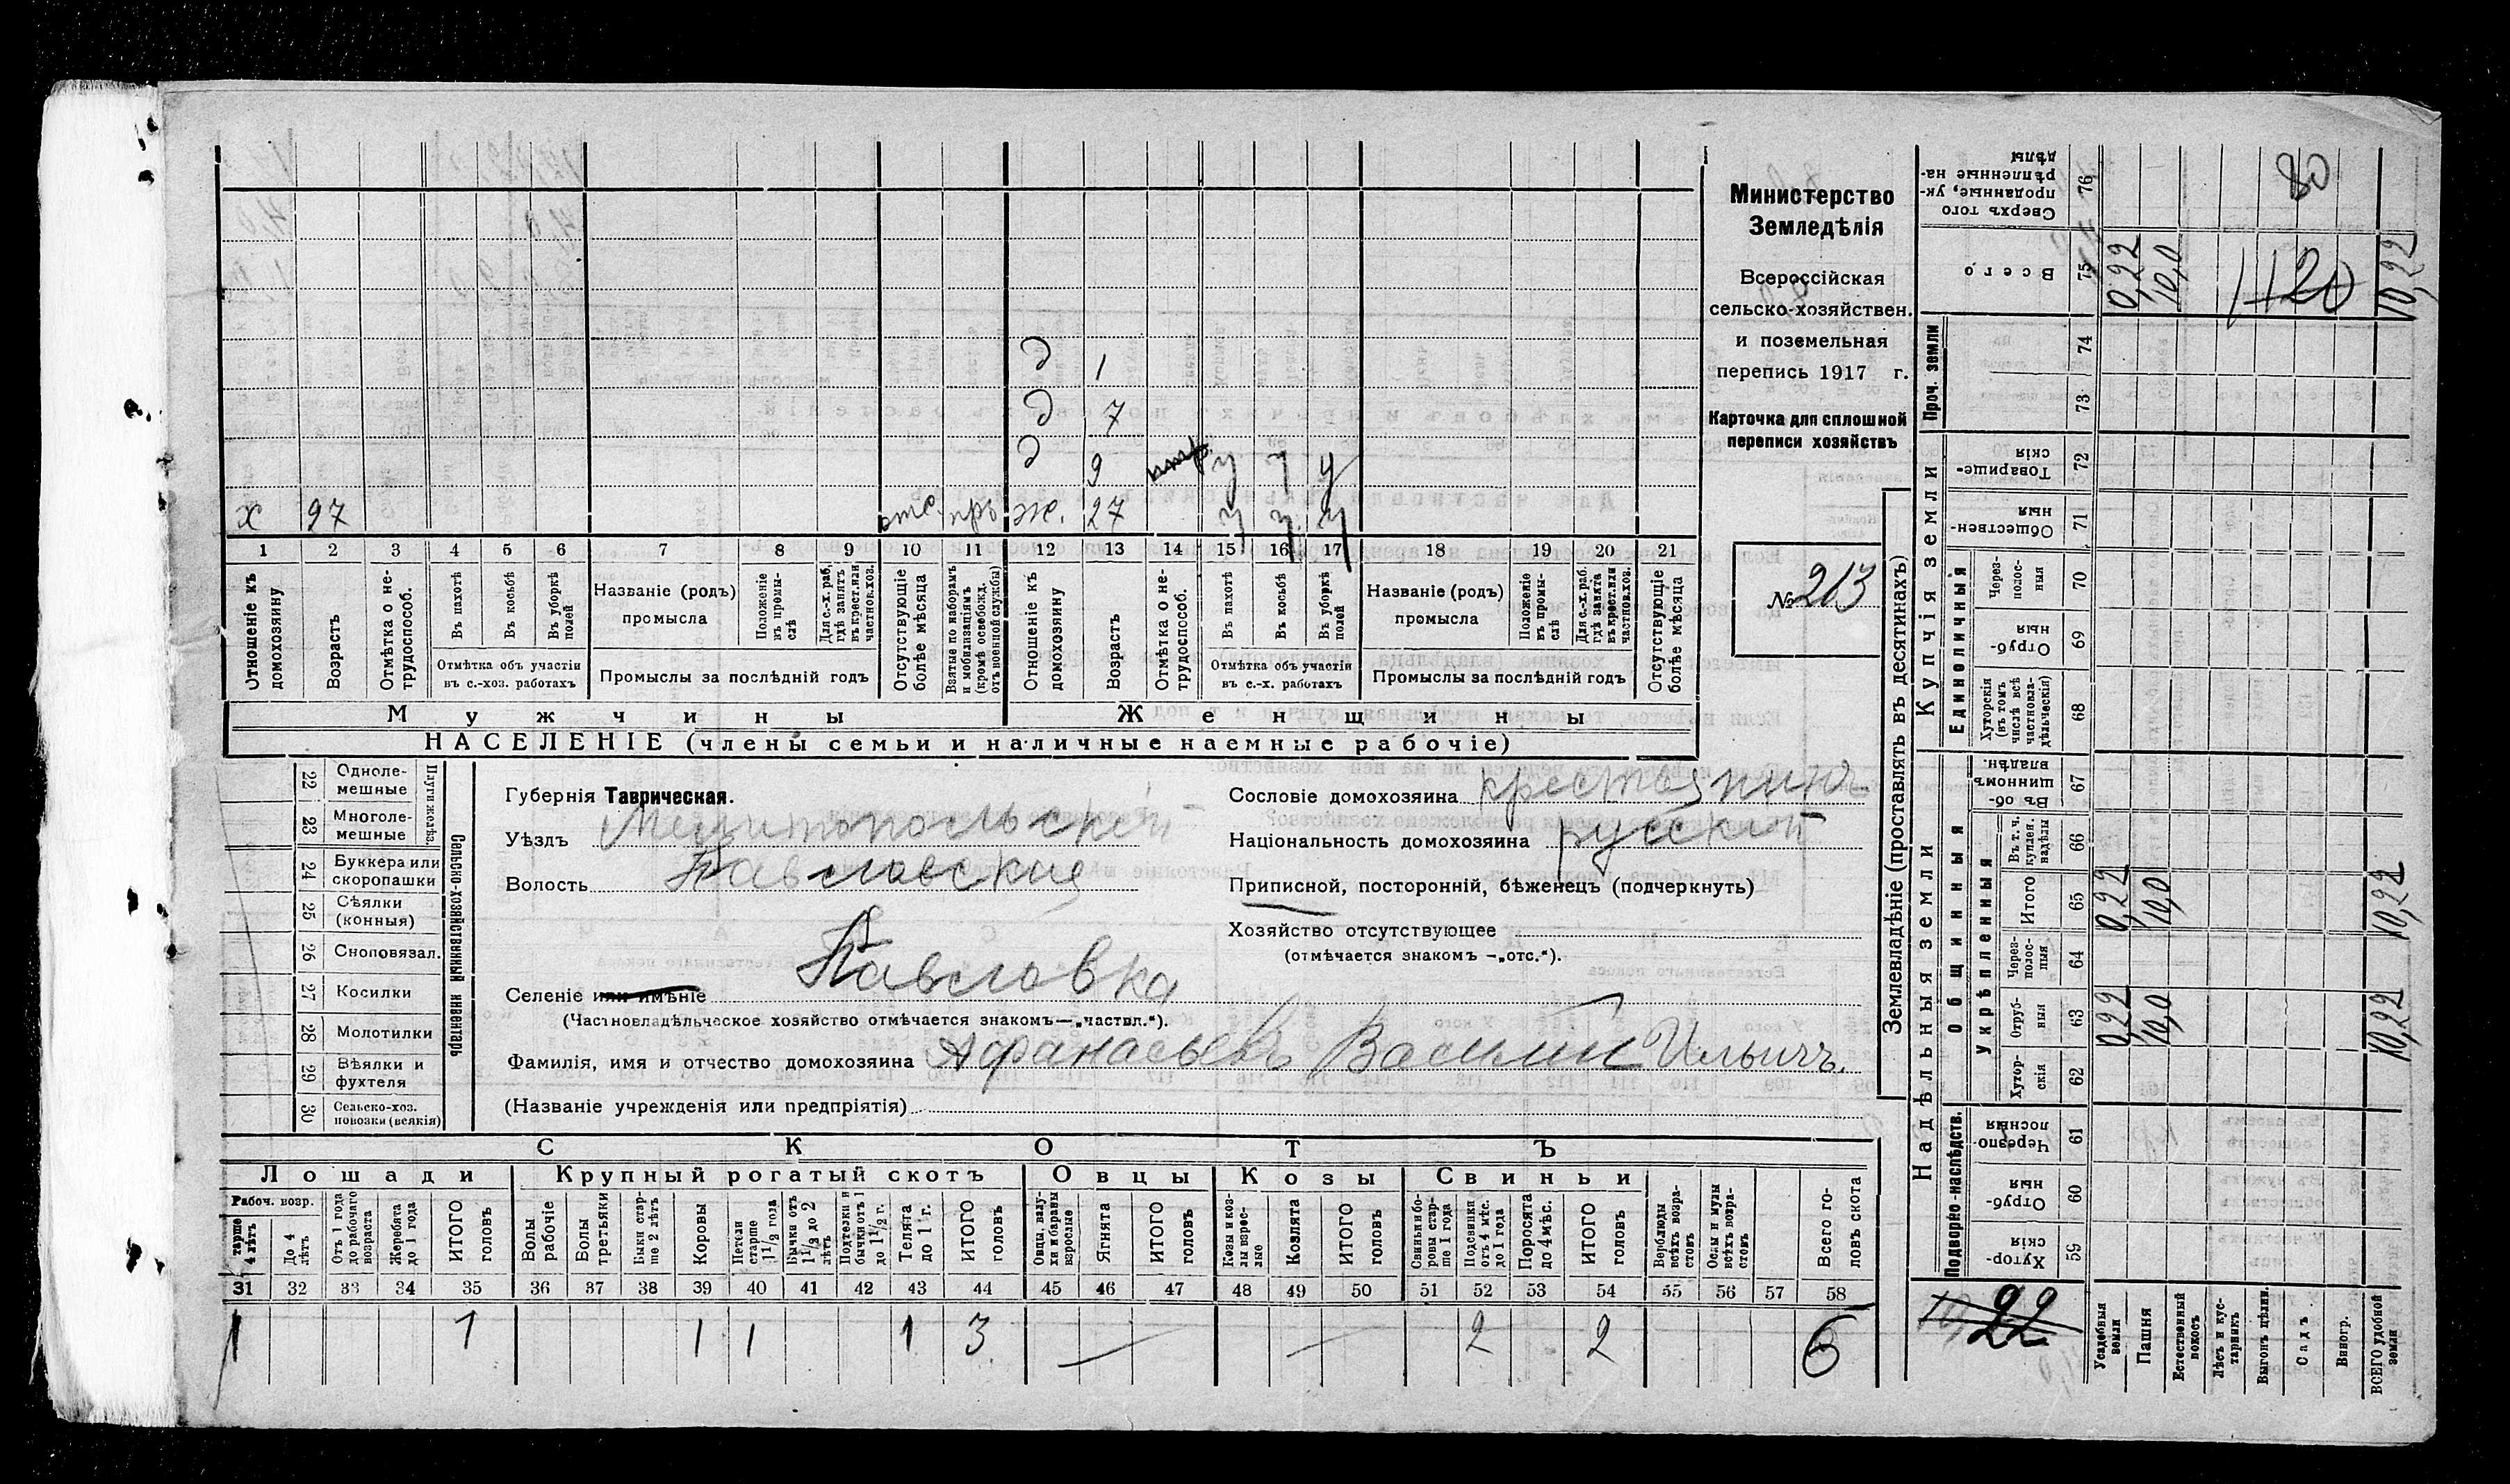 Министерство
Земледѣлія
Всероссійская
сельско-хозяйствен.
и поземельная
перепись 1917 г.
Карточка для сплошной
переписи хозяйствъ
№ 213
д 1
д 7
д 9 у у у
х 97 отс. пр. ж. 27 у у у
1 2 3 4 5 6 7 8 9 10 11 12 13 14 15 16 17 18 19 20 21
Отношеніе къ домохозяину
Возрастъ
Отмѣтка о не-трудоспособ.
Въ пахотѣ
Въ косьбѣ
Въ уборкѣ полей
Отмѣтка объ участіи въ с.-хоз. работахъ
Названіе (родъ) промысла
Положеніе въ промы-слѣ
Для с.-х. раб. гдѣ занятъ въ крест. или частнов. хоз.
Промыслы за послѣдній годъ
Отсутствующіе болѣе мѣсяца
Взятые по наборамъ и мобилизаціямъ (кромѣ освобожд. отъ военной службы)
Отношеніе къ домохозяину
Возрастъ
Отмѣтка о не-трудоспособ.
Въ пахотѣ
Въ косьбѣ
Въ уборкѣ полей
Отмѣтка объ участіи въ с.-х. работахъ
Названіе (родъ) промысла
Положеніе въ промы-слѣ
Для с.-х. раб. гдѣ занята въ крест. или частнов. хоз.
Промыслы за послѣдній годъ
Отсутствующіе болѣе мѣсяца
Мужчины Женщины
НАСЕЛЕНІЕ (члены семьи и наличные наемные рабочіе)
Сельско-хозяйственный инвентарь
Плуги желѣз.
22 Одноле-мешные
23 Многоле-мешные
24 Буккера или скоропашки
25 Сѣялки (конныя)
26 Сноповязал.
27 Косилки
28 Молотилки
29 Вѣялки и фухтеля
30 Сельско-хоз. повозки (всякія)
Губернія Таврическая.
Уѣздъ Мелитопольскій
Волость Павловская
Селеніе или имѣніе Павловка
(Частновладѣльческое хозяйство отмѣчается знакомъ—„частвл.“).
Сословіе домохозяина крестьянинъ
Національность домохозяина русский
Приписной, посторонній, бѣженецъ (подчеркнуть)
Хозяйство отсутствующее
(отмѣчается знакомъ —„отс.“).
Фамилія, имя и отчество домохозяина Афанасьевъ Василий Ильичъ.
(Названіе учрежденія или предпріятія)
СКОТЪ
Лошади Крупный рогатый скотъ Овцы Козы Свиньи
Рабоч. возр.
тарше 4 лѣтъ
До 4 лѣтъ
Отъ 1 года до рабочаго возраста
Жеребята до 1 года
ИТОГО головъ
Волы рабочіе
Волы третьяки
Быки стар-ше 2 лѣтъ
Коровы
Нетели старше 1 1/2 года
Бычки отъ 1 1/2 до 2 лѣтъ
Подтелки и бычки отъ 1 до 1 1/2 г.
Телята до 1 г.
ИТОГО головъ
Овцы, валу-хи и бараны взрослые
Ягнята
ИТОГО головъ
Козы и коз-лы взрос-лые
Козлята
ИТОГО головъ
Свиньи и бо-ровы стар-ше 1 года
Подсвинки отъ 4 мѣс. до 1 года
Поросята до 4 мѣс.
ИТОГО головъ
Верблюды всѣхъ возра-стовъ
Ослы и мулы всѣхъ возра-стовъ
Всего го-ловъ скота
31 32 33 34 35 36 37 38 39 40 41 42 43 44 45 46 47 48 49 50 51 52 53 54 55 56 57 58
1 1 1 1 1 3 — — 2 2 6
Землевладѣніе (проставлять въ десятинахъ)
Надѣльныя земли Купчія земли Проч. земли
Подворно-наслѣдств.
Общинныя
Укрѣпленныя
Единоличный
59 Хутор-скія
60 Отруб-ныя
61 Черезпо-лосныя
62 Хутор-скія
63 Отруб-ныя 0,22 10,0 10,22
64 Через-полос-ныя
65 Итого 0,22 10,0 10,22
66 Въ т. ч. куплен. надѣлы
67 Въ об-щинномъ владѣн.
68 Хуторскія (въ томъ числѣ всѣ частновла-дѣльческія)
69 Отруб-ныя
70 Через-полос-ныя
71 Обществен-ныя
72 Товарище-скія
73
74
75 Всего 0,22 10,0 1120 10,22
76 Сверхъ того проданные, ук-рѣпленные на-дѣлы
80
22
Усадебныя земли
Пашня
Естественный покосъ
Лѣсъ и кус-тарникъ
Выгонъ цѣлин.
Садъ
Виногр.
ВСЕГО удобной земли